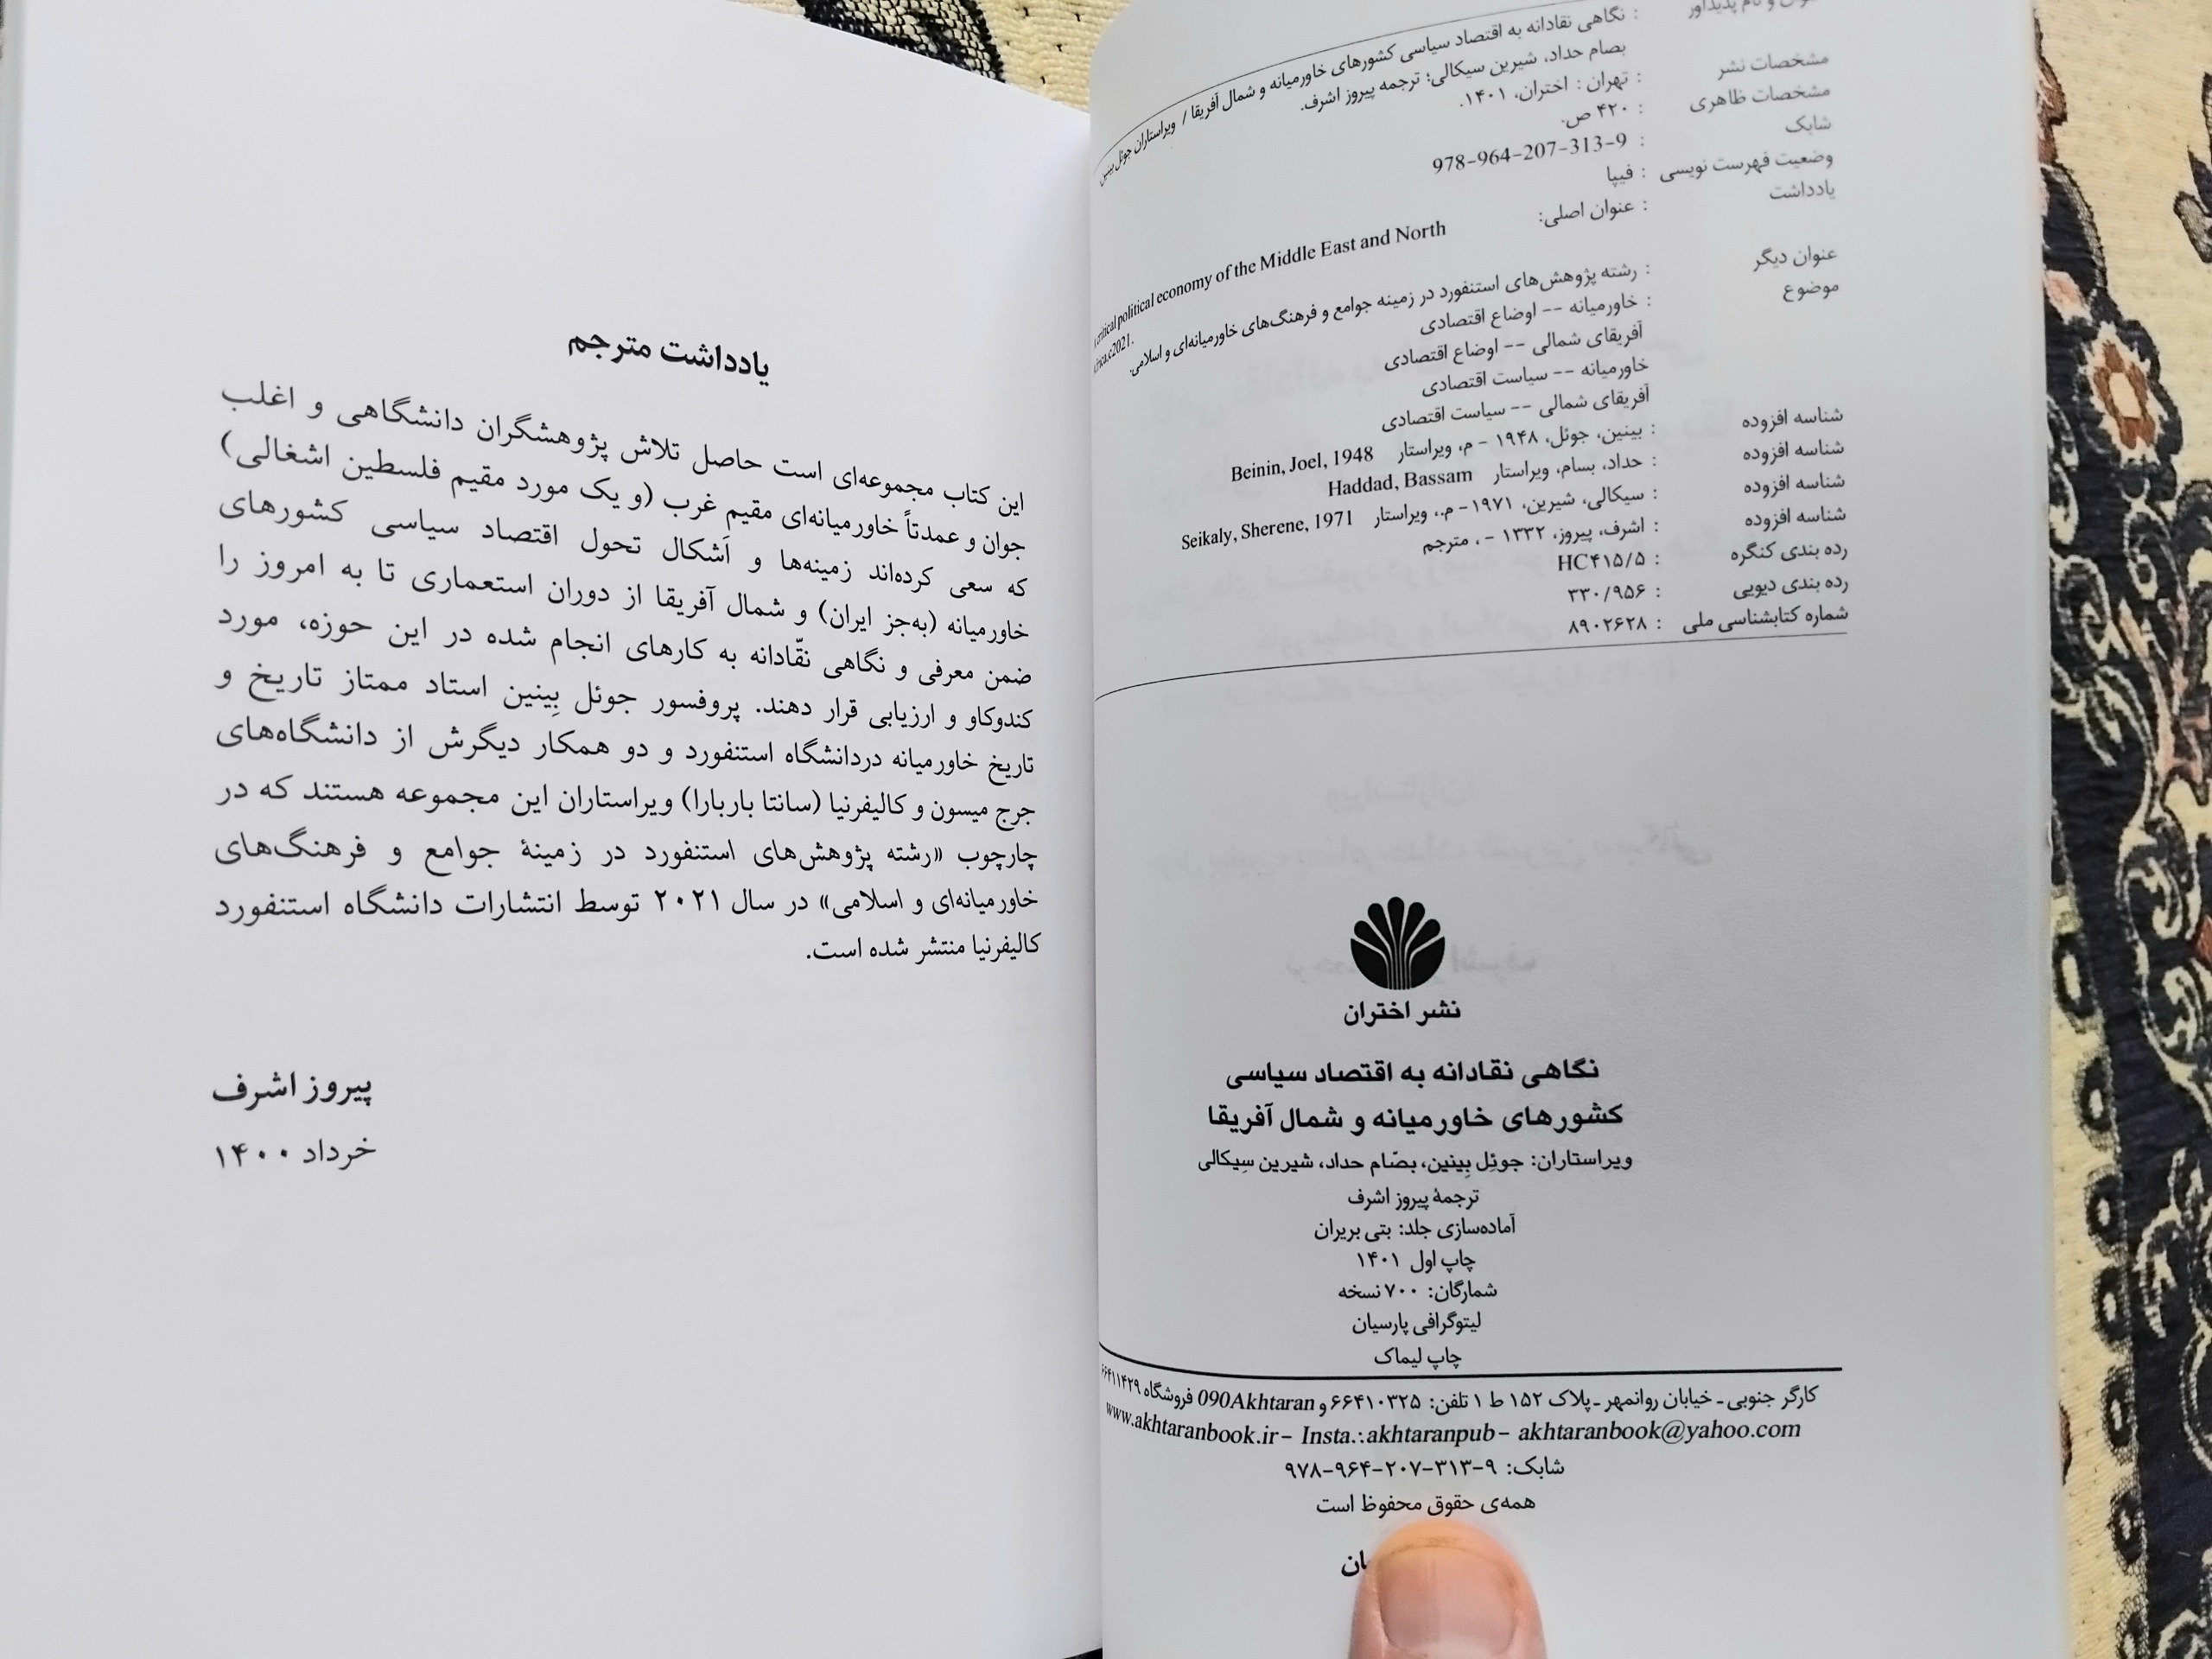 نگاهی نقادانه به اقتصاد سیاسی کشورهای خاورمیانه و شمال آفریقا / ویراستاران جوئل بینین
بصام حداد، شیرین سیکالی؛ ترجمه پیروز اشرف.
مشخصات نشر : تهران : اختران، ۱۴۰۱.
مشخصات ظاهری : ۴۲۰ ص.
شابک : 978-964-207-313-9
وضعیت فهرست نویسی : فیپا
یادداشت : عنوان اصلی:
critical political economy of the Middle East and North
c2021.
عنوان دیگر : رشته پژوهش‌های استنفورد در زمینه جوامع و فرهنگ‌های خاورمیانه‌ای و اسلامی.
موضوع : خاورمیانه -- اوضاع اقتصادی
آفریقای شمالی -- اوضاع اقتصادی
خاورمیانه -- سیاست اقتصادی
آفریقای شمالی -- سیاست اقتصادی
شناسه افزوده : بینین، جوئل، ۱۹۴۸ - م، ویراستار Beinin, Joel, 1948
شناسه افزوده : حداد، بسام، ویراستار Haddad, Bassam
شناسه افزوده : سیکالی، شیرین، ۱۹۷۱ - م.، ویراستار Seikaly, Sherene, 1971
شناسه افزوده : اشرف، پیروز، ۱۳۳۲ - ، مترجم
رده بندی کنگره : HC۴۱۵/۵
رده بندی دیویی : ۳۳۰/۹۵۶
شماره کتابشناسی ملی : ۸۹۰۲۶۲۸
نشر اختران
نگاهی نقادانه به اقتصاد سیاسی
کشورهای خاورمیانه و شمال آفریقا
ویراستاران: جوئل بِینین، بصّام حداد، شیرین سِیکالی
ترجمهٔ پیروز اشرف
آماده‌سازی جلد: بتی بریران
چاپ اول ۱۴۰۱
شمارگان: ۷۰۰ نسخه
لیتوگرافی پارسیان
چاپ لیماک
کارگر جنوبی ـ خیابان روانمهر ـ پلاک ۱۵۲ ط ۱ تلفن: ۶۶۴۱۰۳۲۵ و 090Akhtaran فروشگاه ۶۶۴۱۱۴۲۹
www.akhtaranbook.ir - Insta.:akhtaranpub - akhtaranbook@yahoo.com
شابک: ۹-۳۱۳-۲۰۷-۹۶۴-۹۷۸
همه‌ی حقوق محفوظ است
یادداشت مترجم
این کتاب مجموعه‌ای است حاصل تلاش پژوهشگران دانشگاهی و اغلب
جوان و عمدتاً خاورمیانه‌ای مقیم غرب (و یک مورد مقیم فلسطین اشغالی)
که سعی کرده‌اند زمینه‌ها و اَشکال تحول اقتصاد سیاسی کشورهای
خاورمیانه (به‌جز ایران) و شمال آفریقا از دوران استعماری تا به امروز را
ضمن معرفی و نگاهی نقّادانه به کارهای انجام شده در این حوزه، مورد
کندوکاو و ارزیابی قرار دهند. پروفسور جوئل بِینین استاد ممتاز تاریخ و
تاریخ خاورمیانه دردانشگاه استنفورد و دو همکار دیگرش از دانشگاه‌های
جرج میسون و کالیفرنیا (سانتا باربارا) ویراستاران این مجموعه هستند که در
چارچوب «رشته پژوهش‌های استنفورد در زمینهٔ جوامع و فرهنگ‌های
خاورمیانه‌ای و اسلامی» در سال ۲۰۲۱ توسط انتشارات دانشگاه استنفورد
کالیفرنیا منتشر شده است.
پیروز اشرف
خرداد ۱۴۰۰